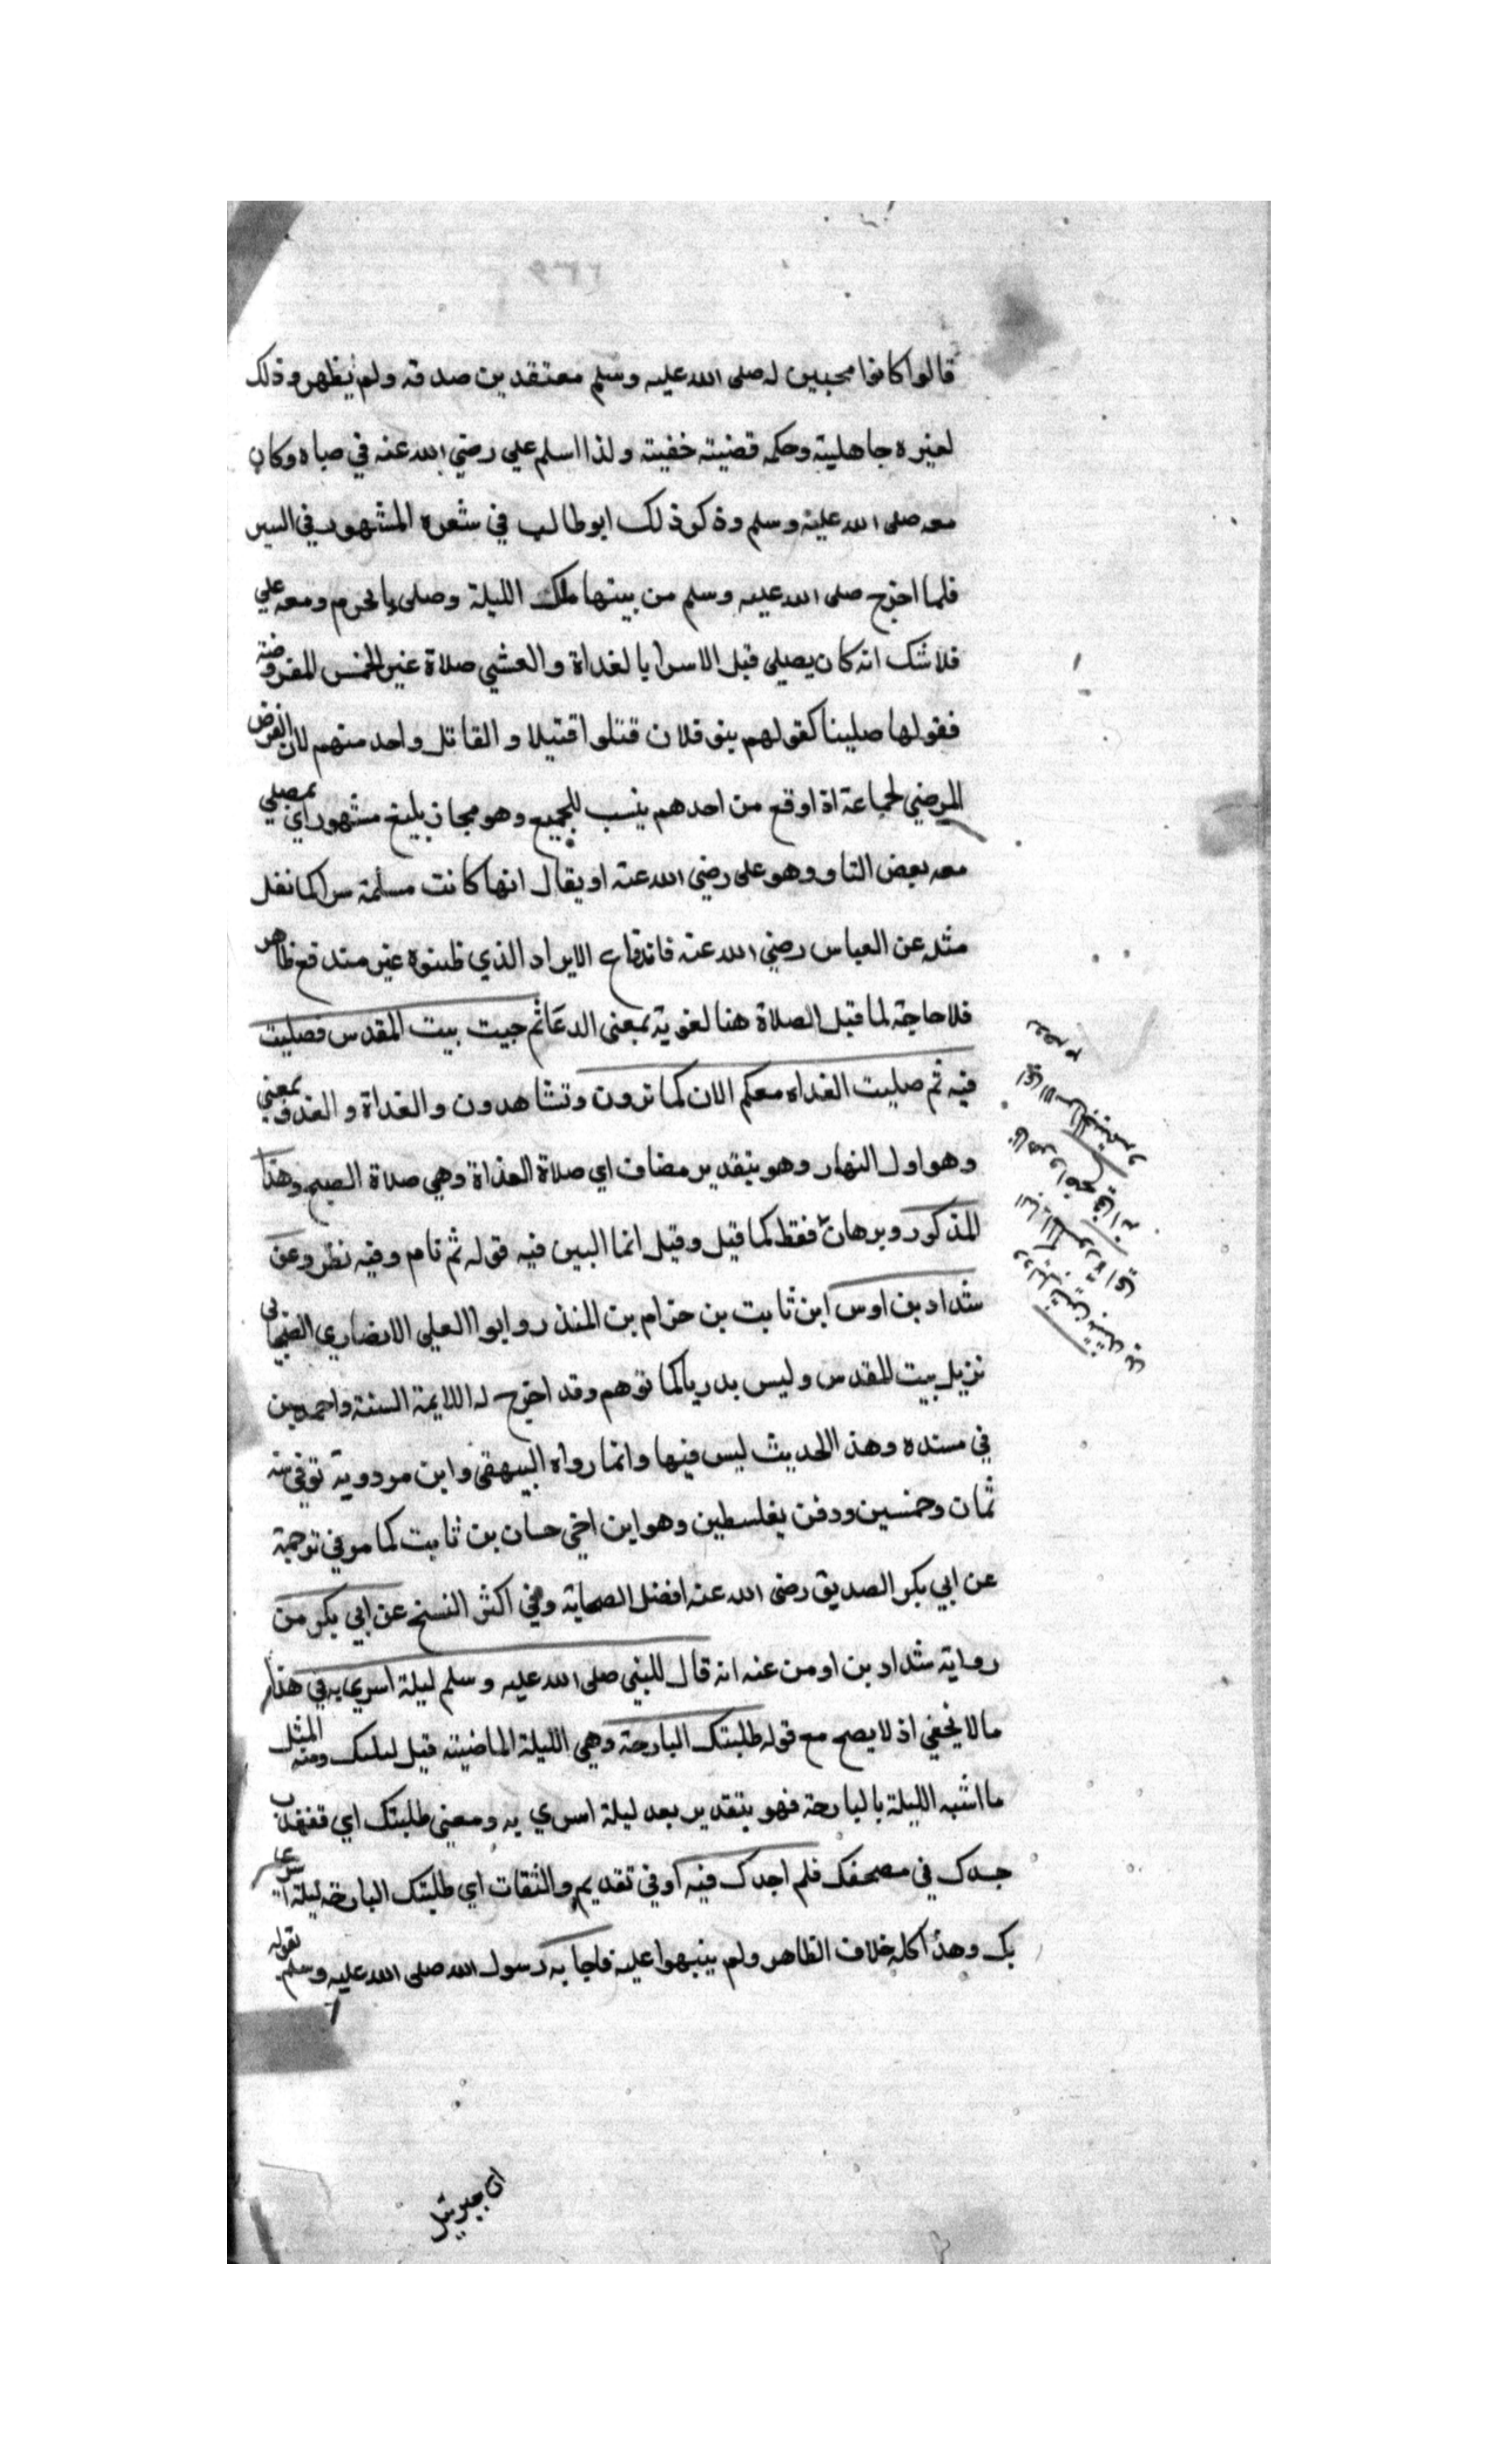 قالوا كانوا محبين له صلى الله عليه وسلم معتقدين صدقه ولم يظهروذلك
لغيره جاهلية وحكمه قضيته خفيته ولذا اسلم علي رضي الله عنه في صباه وكان
معه صلى الله عليه وسلم وذكر ذلك ابوطالب في شعره المشهور في السير
فلما اخرج صلى الله عليه وسلم من بيتها تلك الليلة وصلى بالحرم ومعه علي
فلاشك انه كان يصلي قبل الاسرا بالغداة والعشي صلاة غير الخمس المفروضة
فقولها صلينا كقولهم بنو فلان قتلوا قتيلا والقاتل واحد منهم لان الفرض
المرضي لجماعة اذا وقع من احدهم ينسب للجميع وهو مجاز بليغ مشهور اي يصلي
معه بعض الناو وهو علي رضي الله عنه او يقال انها كانت مسلمة سرا كما نقل
مثله عن العباس رضي الله عنه فاندفاع الايراد الذي ظنوه غير مندفع ظاهر
فلا حاجة لما قيل الصلاة هنا لغوية بمعنى الدعا ثم جيت بيت المقدس فصليت
فيه ثم صليت الغداه معكم الان كما ترون وتشاهدون والغداة والغدو بمعنى
وهو اول النهار وهو بتقدير مضاف اي صلاة الغداة وهي صلاة الصبح وهذا
المذكور وبرهان فقط كما قيل وقيل انما البين فيه قوله ثم نام وفيه نظر وعن
شداد بن اوس ابن ثابت بن حزام بن المنذر وابو العلي الانصاري الصحابي
نزيل بيت المقدس وليس بدريا كما توهم وقد اخرج له الايمة الستة واحمد بن
في مسنده وهذ الحديث ليس فيها وانما رواه البيهقي وابن مردوية توفي سنة
ثمان وخمسين ودفن بفلسطين وهو ابن اخي حسان بن ثابت كما مر في ترجمة
عن ابي بكر الصديق رضى الله عنه افضل الصحابة وفي اكثر النسخ عن ابي بكر من
رواية شداد بن اوس عنه انه قال للنبي صلى الله عليه وسلم ليلة اسري به في هذا
ما لا يخفي اذ لا يصح مع قوله طلبتك البارحة وهي الليلة الماضيته قبل ليلتك ومنه المثل
ما اشبه الليلة بالبارحة فهو بتقدير بعد ليلة اسري به ومعنى طلبتك اي تفقدت
جسدك في مصحفك فلم اجدك فيه اوفي تقديم والثقات اي طلبتك البارحة ليلة اسري
بك وهذا كله خلاف الظاهر ولم ينبهوا عليه فاجابه رسول الله صلى الله عليه وسلم بقوله
ان جبرئيل